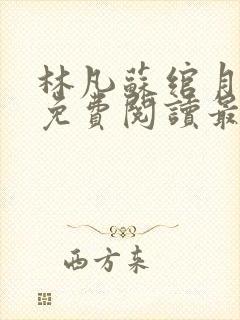 林凡蘇綰月
免費閱讀最
西方来